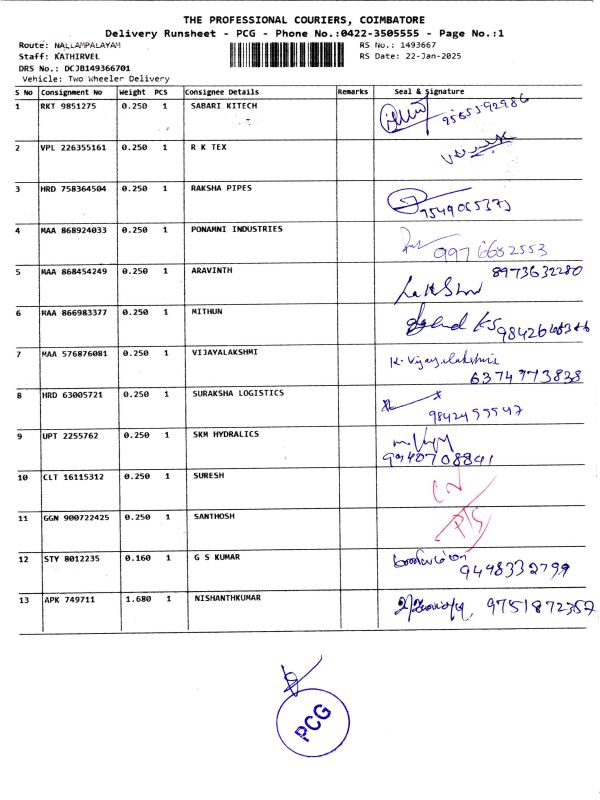 THE PROFESSIONAL COURIERS, COIMBATORE
Delivery Runsheet - PCG - Phone No.:0422-3505555 - Page No.:1
Route: NALLAMPALAYAM RS No.: 1493667
Staff: KATHIRVEL RS Date: 22-Jan-2025
DRS No.: DCJB149366701
Vehicle: Two Wheeler Delivery
S No Consignment No Weight PCS Consignee Details Remarks Seal & Signature
1 RKT 9851275 0.250 1 SABARI KITECH
2 VPL 226355161 0.250 1 R K TEX
3 HRD 758364504 0.250 1 RAKSHA PIPES
4 MAA 868924033 0.250 1 PONAMNI INDUSTRIES 9976682553
5 MAA 868454249 0.250 1 ARAVINTH 8973632280
6 MAA 866983377 0.250 1 MITHUN
7 MAA 576876081 0.250 1 VIJAYALAKSHMI K. Vijayalakshmi
6374773838
8 HRD 63005721 0.250 1 SURAKSHA LOGISTICS
9 UPT 2255762 0.250 1 SKM HYDRALICS
9940708841
10 CLT 16115312 0.250 1 SURESH
11 GGN 900722425 0.250 1 SANTHOSH
12 STY 8012235 0.160 1 G S KUMAR
9498332799
13 APK 749711 1.680 1 NISHANTHKUMAR 9751872357
PCG